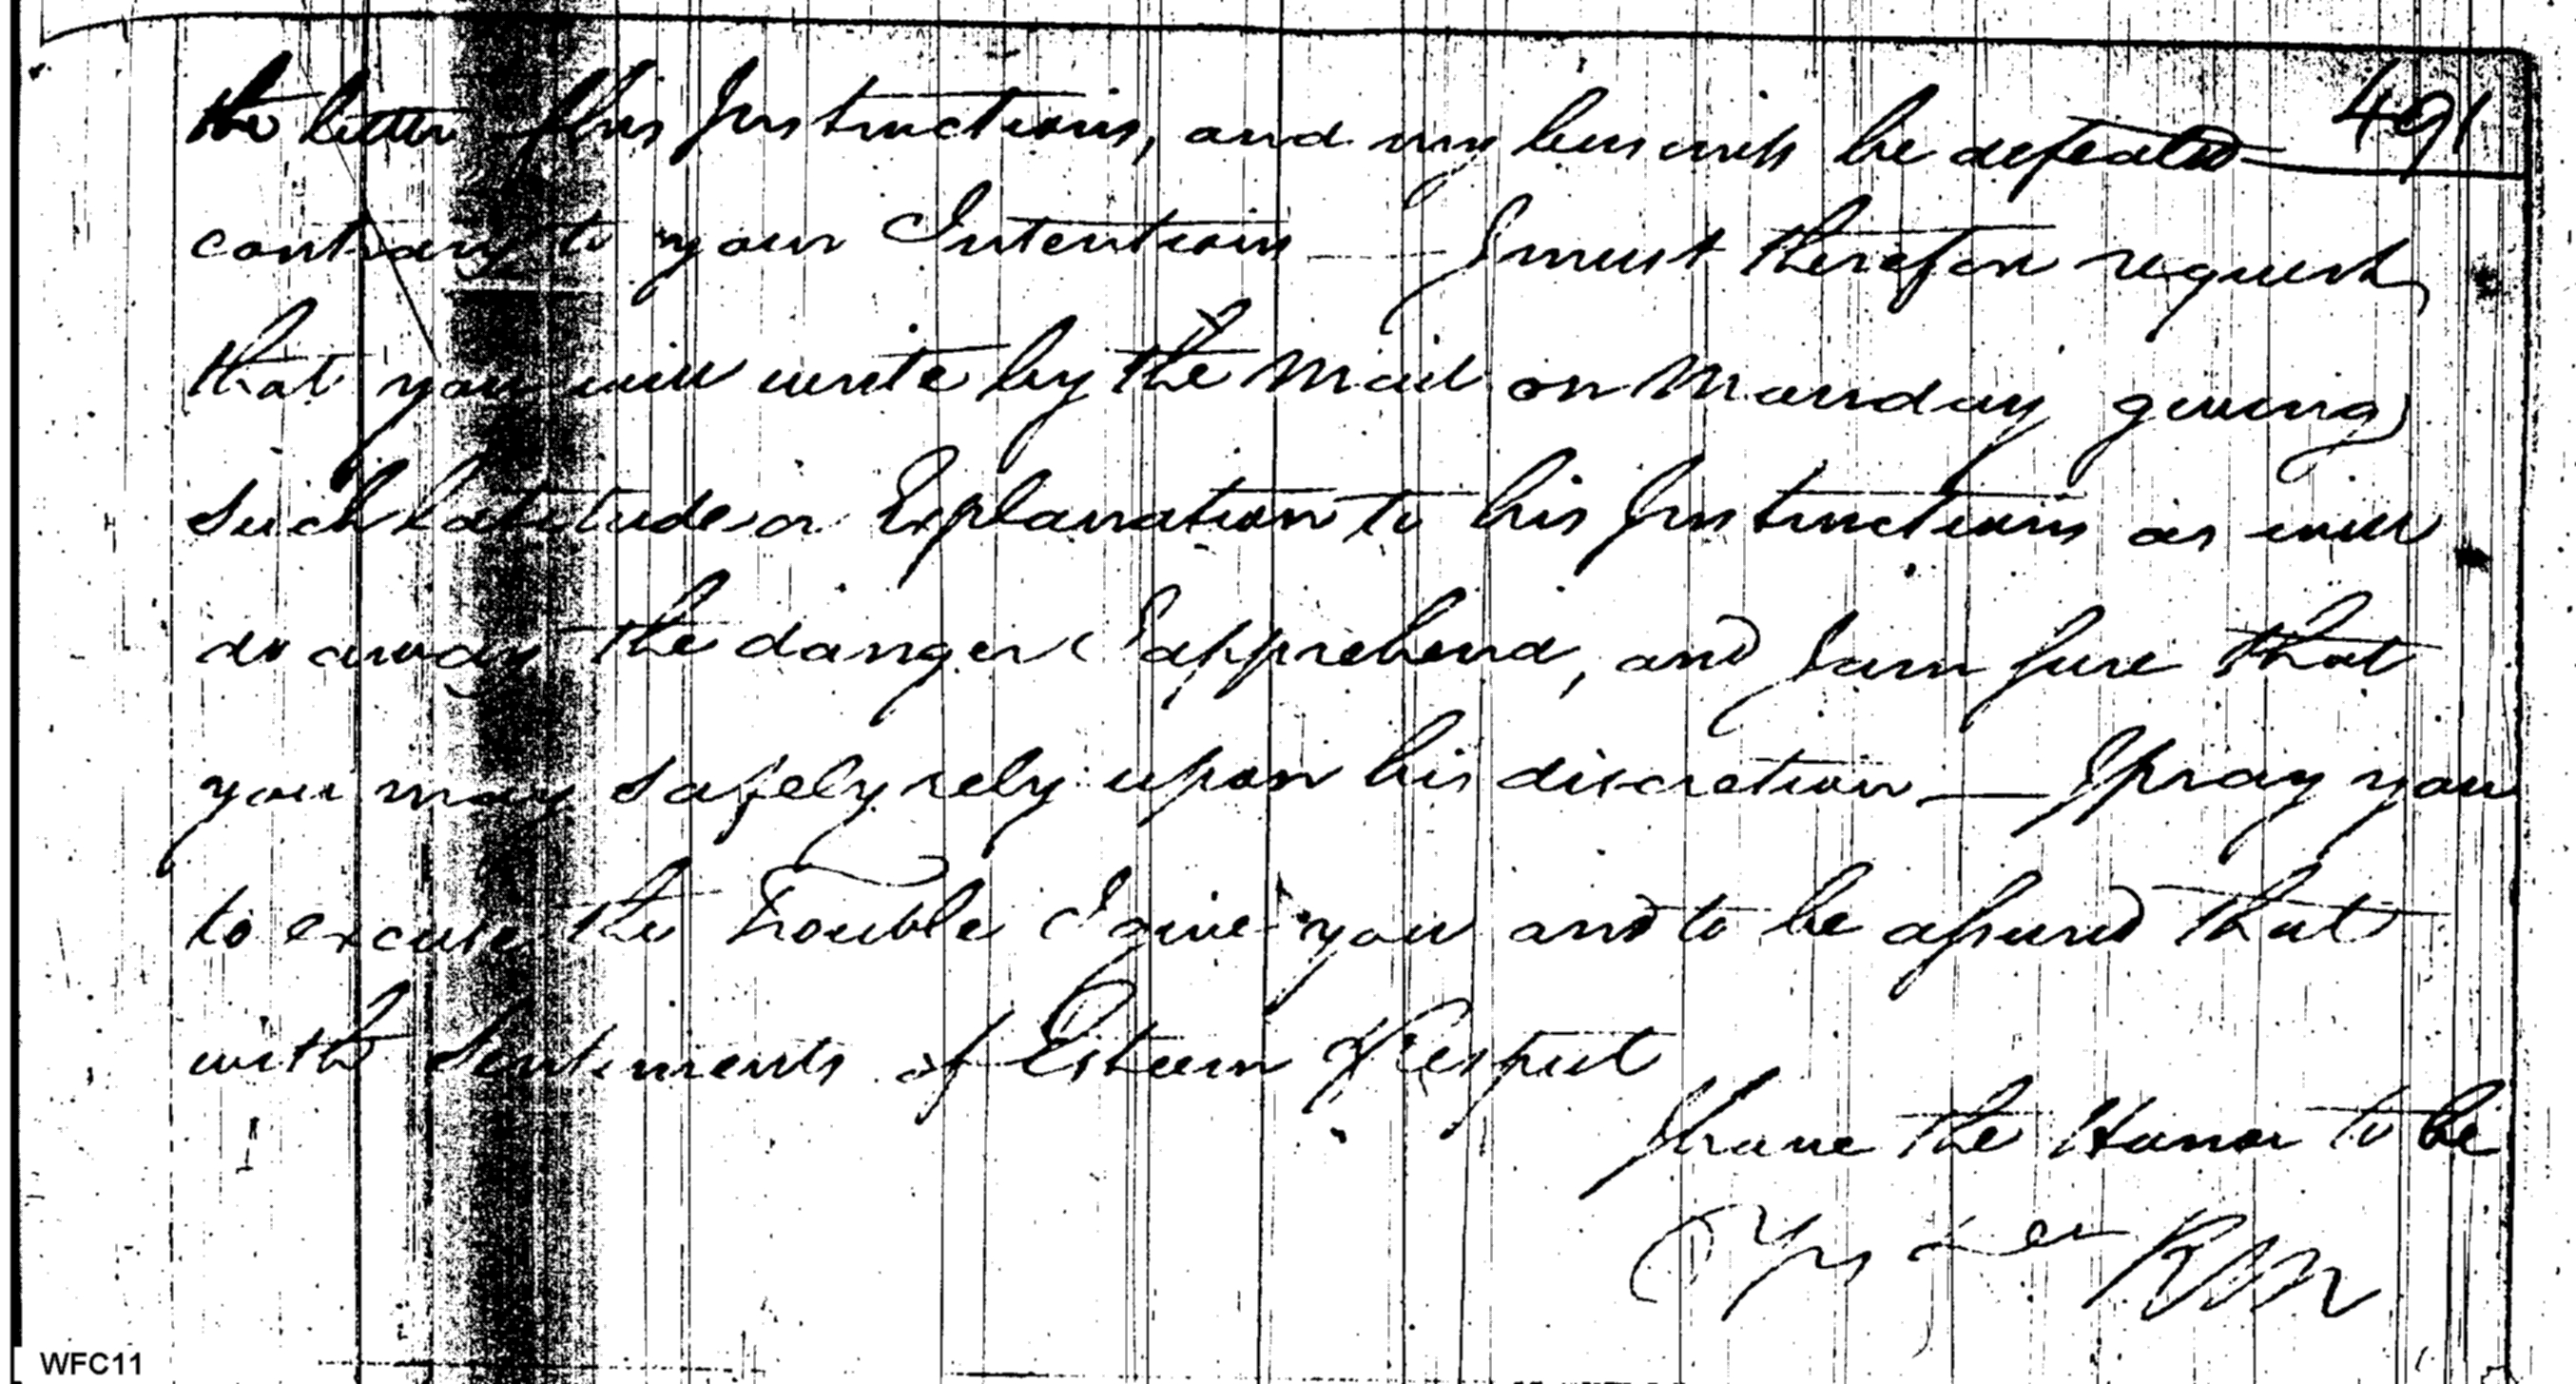 491
the letter of his Instructions, and my business will be defeated
contrary to your Intentions — I must therefore request
that you will write by the Mail on Monday giving
such latitude or Explanation to his Instructions as will
do away the danger I apprehend, and I am sure that
you may safely rely upon his discretion — I pray you
to excuse the Trouble I give you and to be assured that
with Sentiments of Esteem & Respect
I have the Honor to be
RM
WFC11